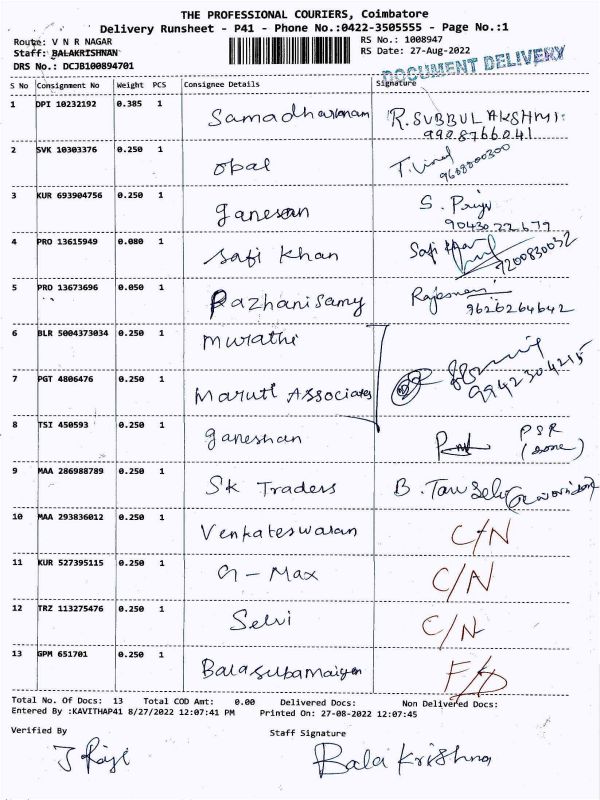 THE PROFESSIONAL COURIERS, Coimbatore
Delivery Runsheet - P41 - Phone No.:0422-3505555 - Page No.:1
Route: V N R NAGAR
RS No.: 1008947
Staff: BALAKRISHNAN
RS Date: 27-Aug-2022
DRS No.: DCJB100894701
DOCUMENT DELIVERY
S No Consignment No Weight PCS Consignee Details Signature
1 DPI 10232192 0.385 1 Samadharmam R. SUBBULAKSHMI
9908766041
2 SVK 10303376 0.250 1 Opal T. Vimal
9688800300
3 KUR 693904756 0.250 1 Ganesan S. Priya
9043022679
4 PRO 13615949 0.080 1 Safi Khan Safi Khan
9200830032
5 PRO 13673696 0.050 1 Pazhanisamy
9626264642
6 BLR 5004373034 0.250 1 Murathi
7 PGT 4806476 0.250 1 Maruti Associates
9942304215
8 TSI 450593 0.250 1 Ganeshan PSR
9 MAA 286988789 0.250 1 SK Traders B.
10 MAA 293836012 0.250 1 Venkateswaran C/N
11 KUR 527395115 0.250 1 G-Max C/N
12 TRZ 113275476 0.250 1 Selvi C/N
13 GPM 651701 0.250 1 F/D
Total No. Of Docs: 13 Total COD Amt: 0.00 Delivered Docs: Non Delivered Docs:
Entered By :KAVITHAP41 8/27/2022 12:07:41 PM Printed On: 27-08-2022 12:07:45
Verified By Staff Signature
Bala Krishna